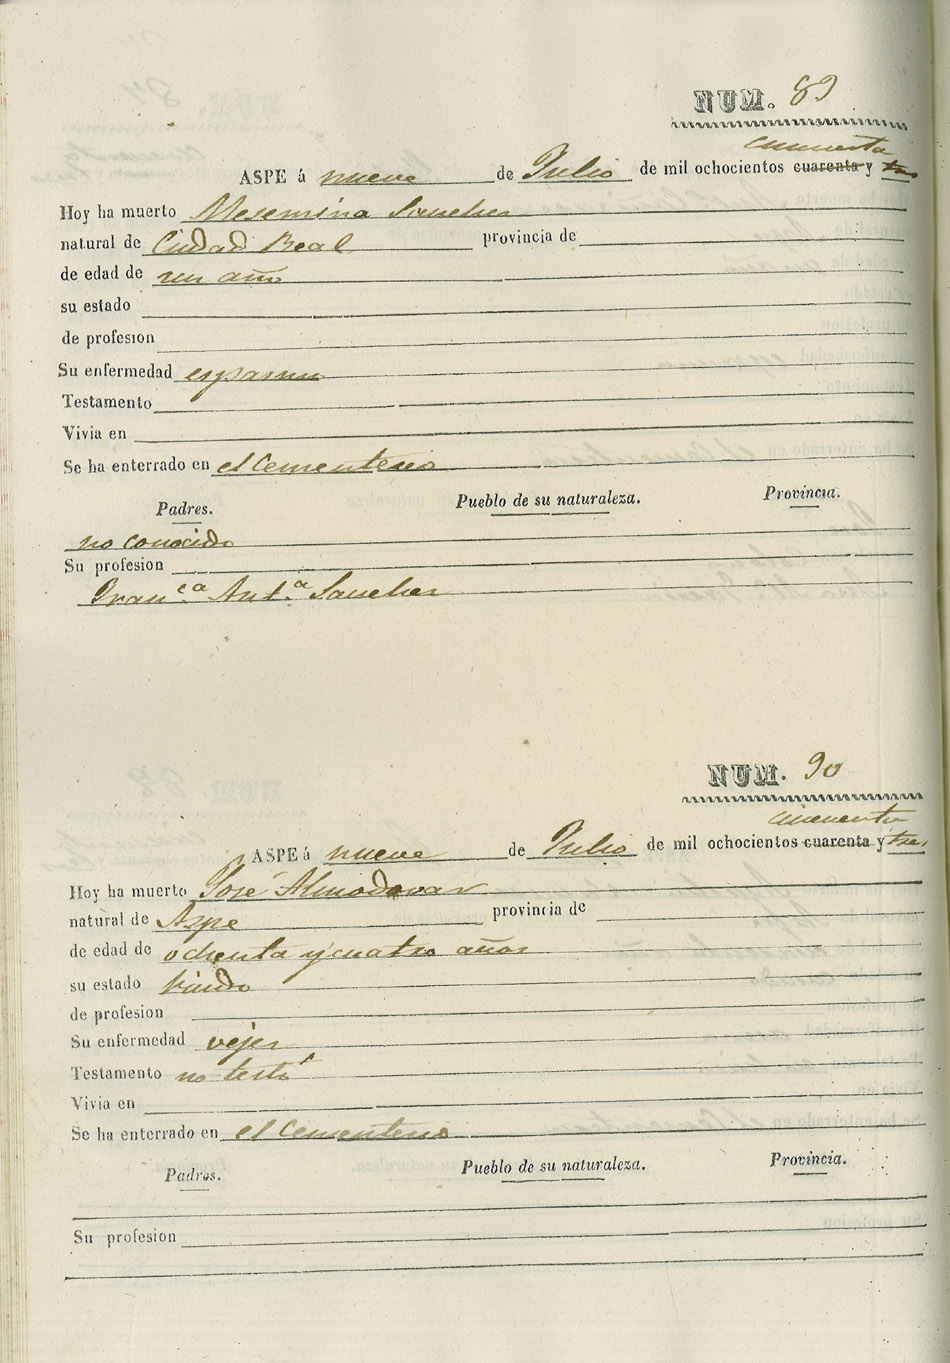 NUM. 89
cincuenta
ASPE á nueve de Julio de mil ochocientos cuarenta y tres
Hoy ha muerto Mesemina Sanchez
natural de Ciudad Real provincia de
de edad de un año
su estado
de profesion
Su enfermedad espasmo
Testamento
Vivia en
Se ha enterrado en el Cementerio
Padres. Pueblo de su naturaleza. Provincia.
no conocido
Su profesion
Fran.ca Ant.a Sanchez
NUM. 90
cincuenta
ASPE á nueve de Julio de mil ochocientos cuarenta y tres
Hoy ha muerto José Almodovar
natural de Aspe provincia de
de edad de ochenta y cuatro años
su estado Viudo
de profesion
Su enfermedad vejez
Testamento no testó
Vivia en
Se ha enterrado en el Cementerio
Padres. Pueblo de su naturaleza. Provincia.
Su profesion